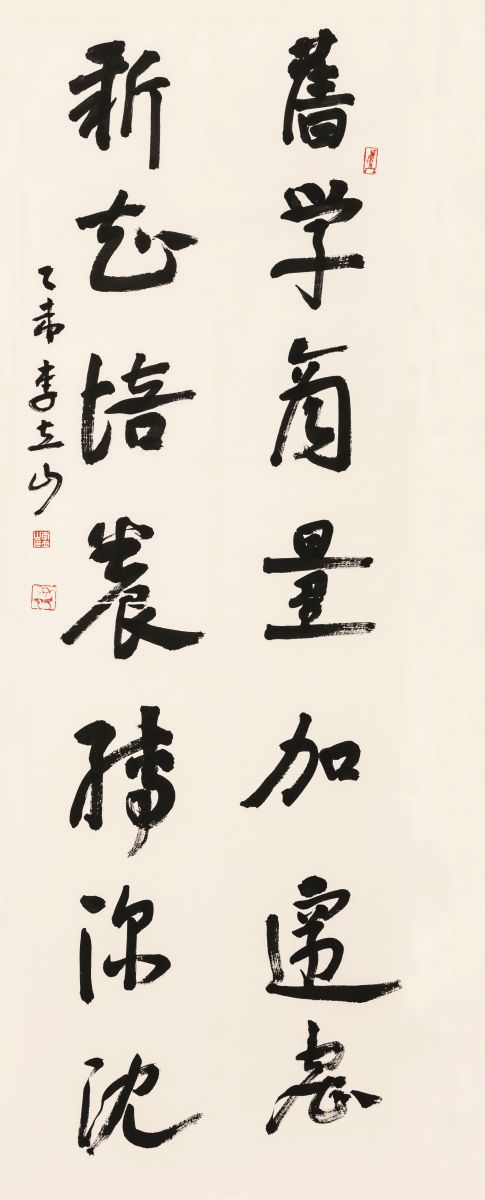 舊学商量加邃密
新知培養轉深沈
乙未李立山